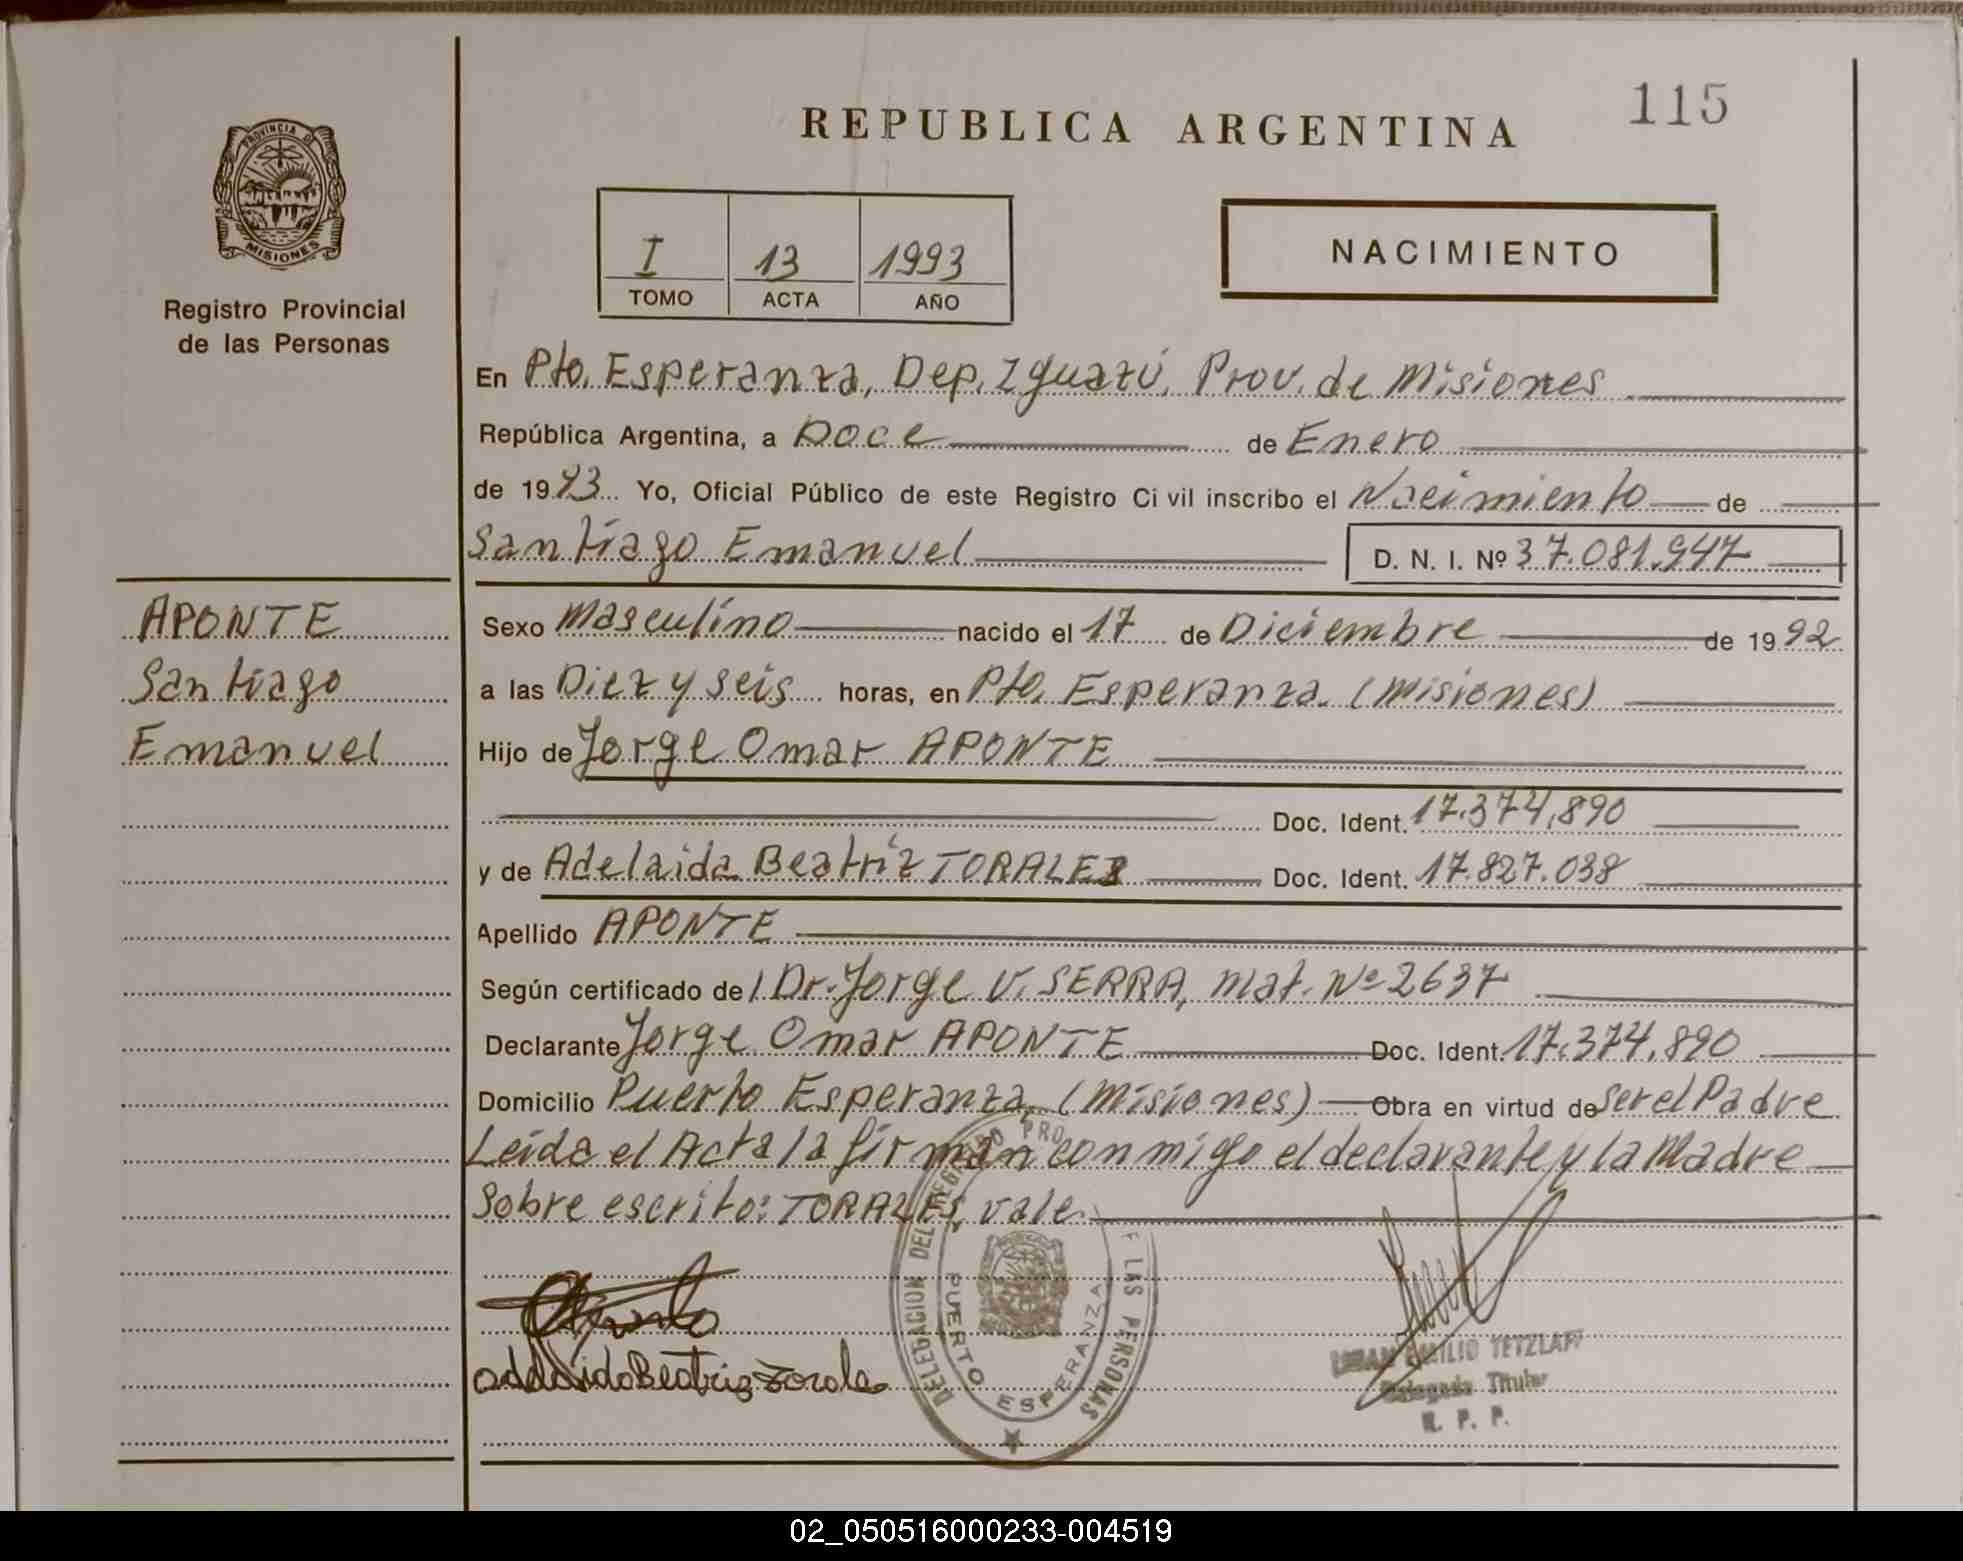 115
REPUBLICA ARGENTINA
PROVINCIA DE
MISIONES
Registro Provincial
de las Personas
I 13 1993
TOMO ACTA AÑO
NACIMIENTO
En Pto. Esperanza, Dep. Iguazú, Prov. de Misiones
República Argentina, a Doce de Enero
de 1993 Yo, Oficial Público de este Registro Civil inscribo el Nacimiento de
Santiago Emanuel D. N. I. Nº 37.081.947
APONTE
Santiago
Emanuel
Sexo Masculino nacido el 17 de Diciembre de 1992
a las Diez y seis horas, en Pto. Esperanza. (Misiones)
Hijo de Jorge Omar APONTE
Doc. Ident. 17.374.890
y de Adelaida Beatriz TORALES Doc. Ident. 17.827.038
Apellido APONTE
Según certificado de l Dr. Jorge V. SERRA, Mat. Nº 2637
Declarante Jorge Omar APONTE Doc. Ident. 17.374.890
Domicilio Puerto Esperanza, (Misiones) Obra en virtud de Ser el Padre
Leída el Acta la firman conmigo el declarante y la Madre
Sobre escrito: TORALES, vale.
DELEGACION DEL REGISTRO PRO DE LAS PERSONAS
PUERTO ESPERANZA
Adelaida Beatriz Torales
EMILIO TETZLAFF
Delegado Titular
R. P. P.
02_050516000233-004519